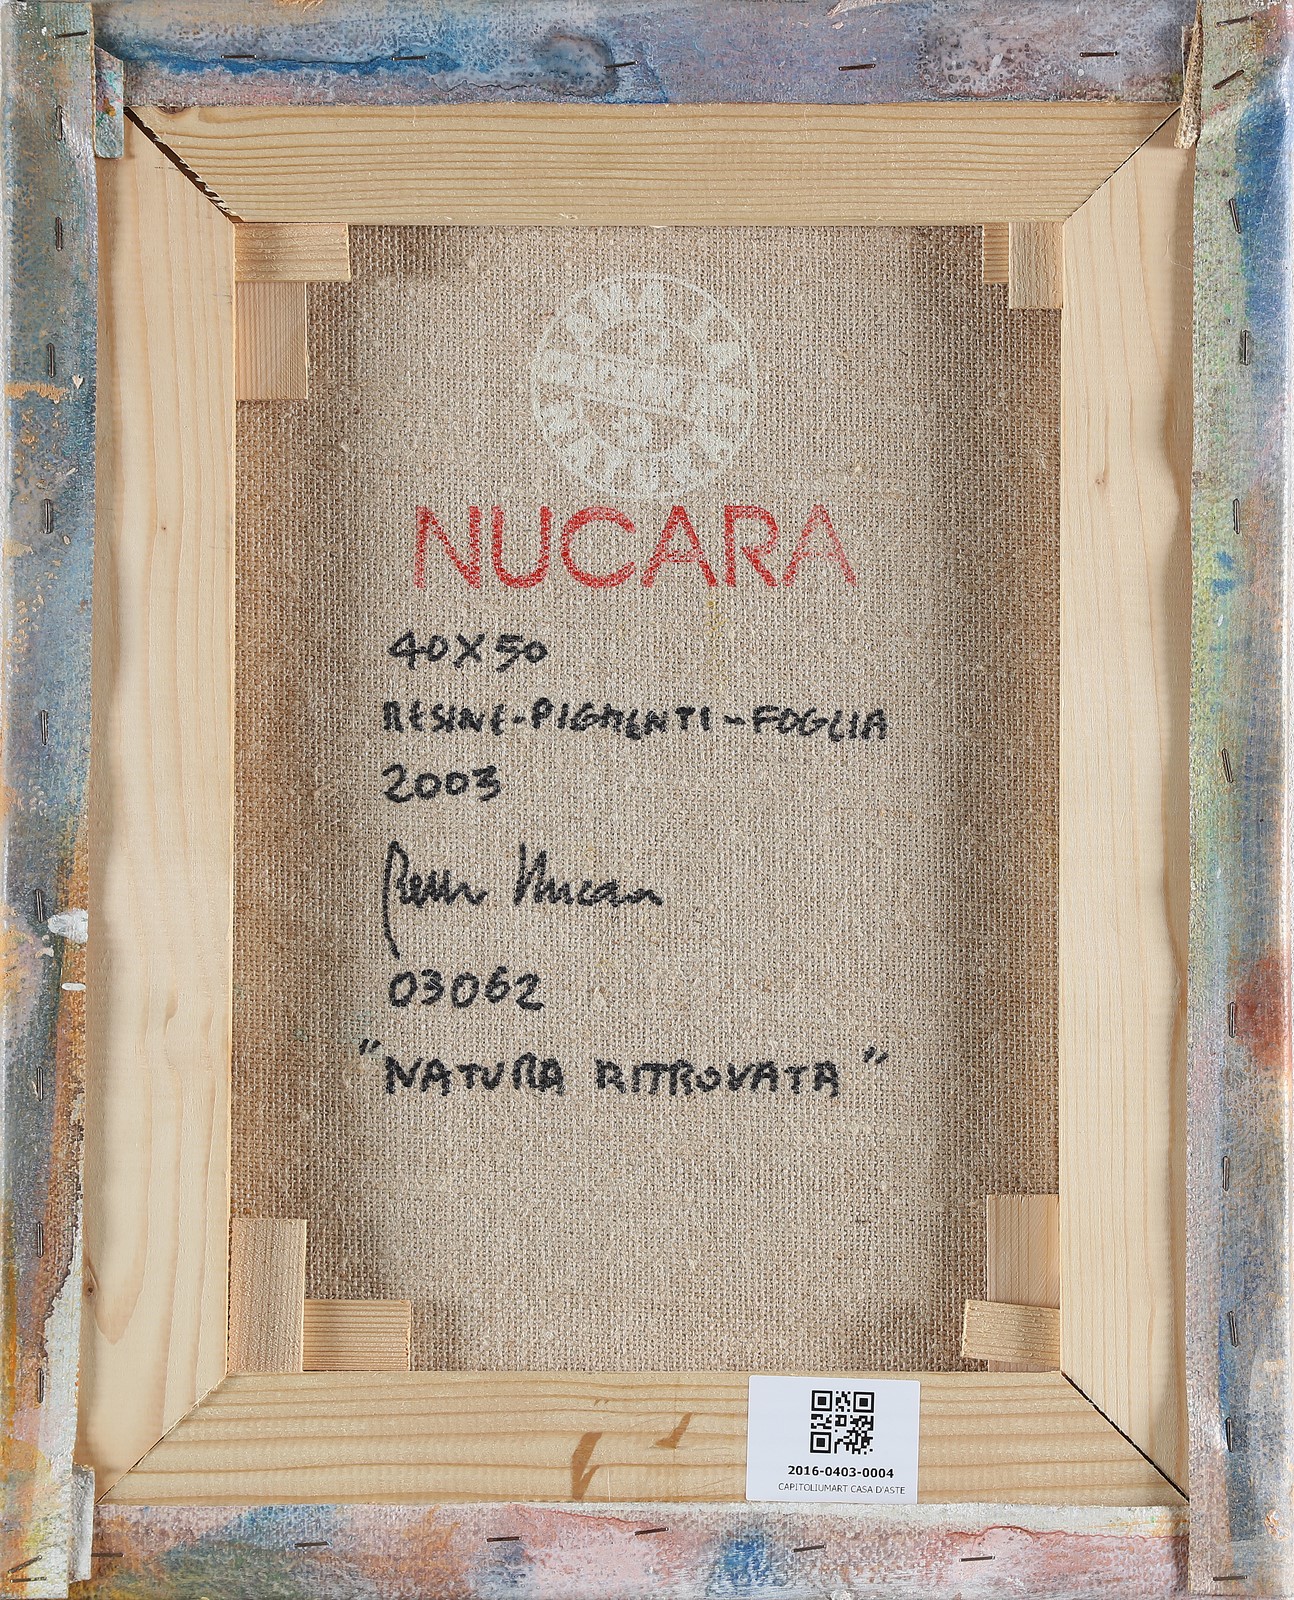 NUCARA
40X50
RESINE-PIGMENTI-FOGLIA
2003
Nucara
03062
"NATURA RITROVATA"
2016-0403-0004
CAPITOLIUMART CASA D'ASTE